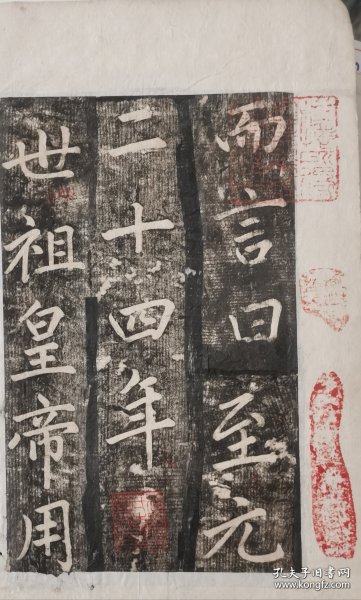 而言曰至元
二十四年
世祖皇帝用
孔夫子旧书网
kongfz.com